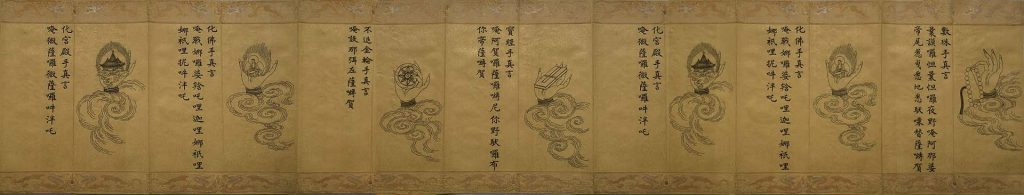 數珠手真言
曩謨囉怛曩怛囉夜野唵阿那婆
帝尾惹曳悉地悉馱㗚替薩嚩賀
化佛手真言
唵戰娜囉婆吒哩迦哩娜祇哩
娜祇哩抳吽泮吒
化宮殿手真言
唵微薩囉微薩囉吽泮吒
寶經手真言
唵阿賀囉薩囉嚩尼你野馱囉布
你帝薩嚩賀
不退金輪手真言
唵設那弭左薩嚩賀
化佛手真言
唵戰娜囉婆吒哩迦哩娜祇哩
娜祇哩抳吽泮吒
化宮殿手真言
唵微薩囉微薩囉吽泮吒